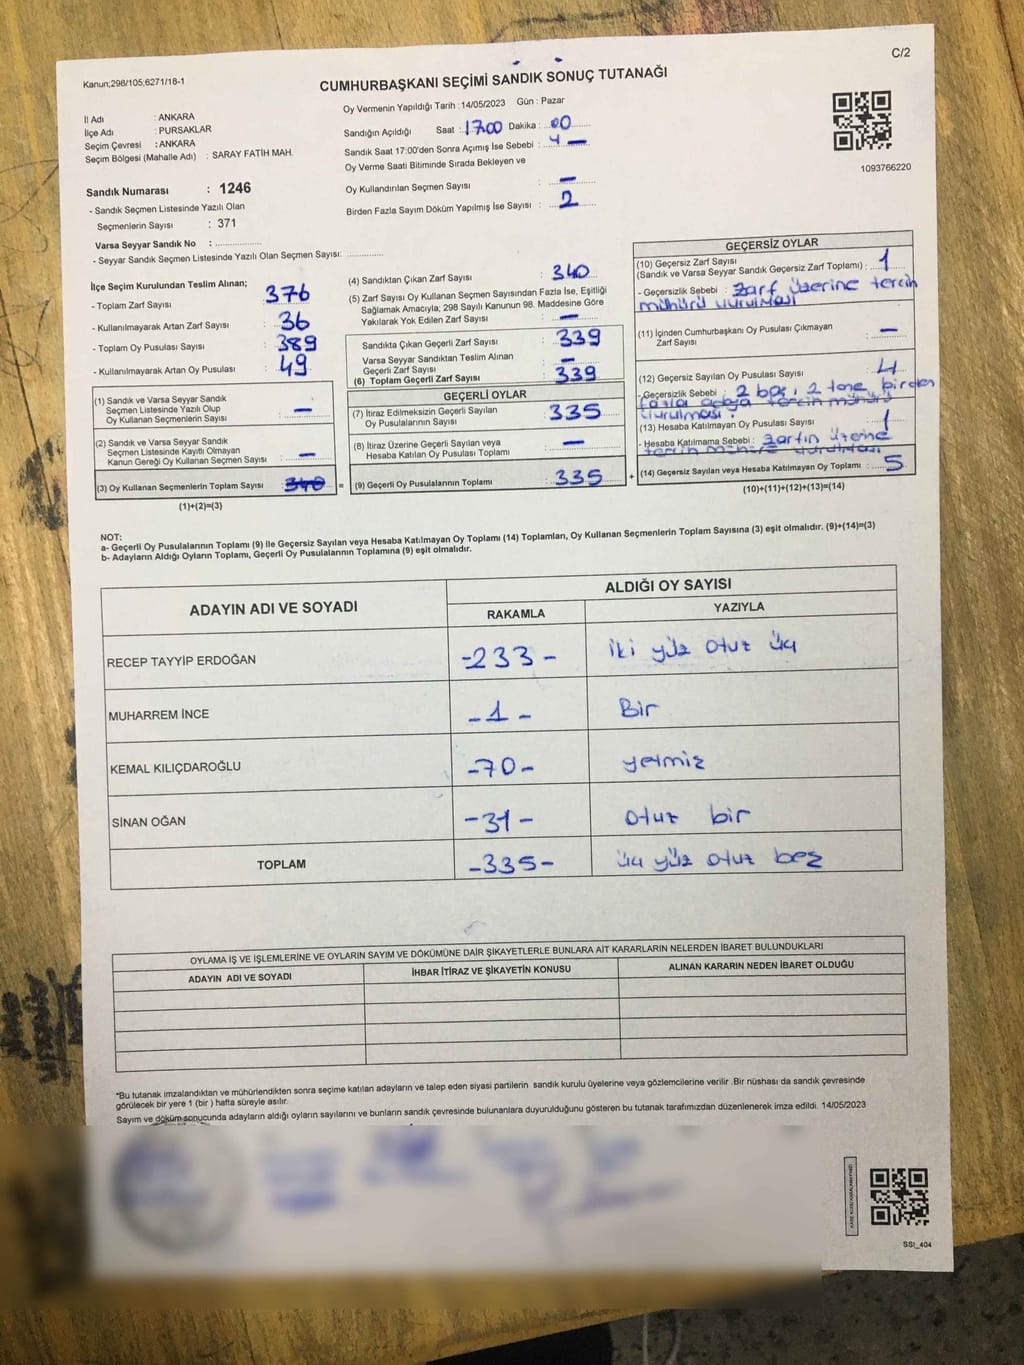 C/2
Kanun;298/105;6271/18-1
CUMHURBAŞKANI SEÇİMİ SANDIK SONUÇ TUTANAĞI
İl Adı : ANKARA
İlçe Adı : PURSAKLAR
Seçim Çevresi : ANKARA
Seçim Bölgesi (Mahalle Adı) : SARAY FATİH MAH.
Sandık Numarası : 1246
- Sandık Seçmen Listesinde Yazılı Olan
Seçmenlerin Sayısı : 371
Varsa Seyyar Sandık No : ................
- Seyyar Sandık Seçmen Listesinde Yazılı Olan Seçmen Sayısı: .............
Oy Vermenin Yapıldığı Tarih : 14/05/2023 Gün : Pazar
Sandığın Açıldığı Saat : 17.00 Dakika : 00
Sandık Saat 17:00'den Sonra Açımış İse Sebebi : 4 —
Oy Verme Saati Bitiminde Sırada Bekleyen ve
Oy Kullandırılan Seçmen Sayısı : —
Birden Fazla Sayım Döküm Yapılmış İse Sayısı : 2
1093766220
İlçe Seçim Kurulundan Teslim Alınan;
- Toplam Zarf Sayısı : 376
- Kullanılmayarak Artan Zarf Sayısı : 36
- Toplam Oy Pusulası Sayısı : 389
- Kullanılmayarak Artan Oy Pusulası : 49
(1) Sandık ve Varsa Seyyar Sandık
Seçmen Listesinde Yazılı Olup
Oy Kullanan Seçmenlerin Sayısı : —
(2) Sandık ve Varsa Seyyar Sandık
Seçmen Listesinde Kayıtlı Olmayan
Kanun Gereği Oy Kullanan Seçmen Sayısı : —
(3) Oy Kullanan Seçmenlerin Toplam Sayısı : 340 =
(1)+(2)=(3)
(4) Sandıktan Çıkan Zarf Sayısı : 340
(5) Zarf Sayısı Oy Kullanan Seçmen Sayısından Fazla İse, Eşitliği
Sağlamak Amacıyla; 298 Sayılı Kanunun 98. Maddesine Göre
Yakılarak Yok Edilen Zarf Sayısı : —
Sandıkta Çıkan Geçerli Zarf Sayısı : 339
Varsa Seyyar Sandıktan Teslim Alınan
Geçerli Zarf Sayısı : —
(6) Toplam Geçerli Zarf Sayısı : 339
GEÇERLİ OYLAR
(7) İtiraz Edilmeksizin Geçerli Sayılan
Oy Pusulasının Sayısı : 335
(8) İtiraz Üzerine Geçerli Sayılan veya
Hesaba Katılan Oy Pusulası Toplamı : —
(9) Geçerli Oy Pusulalarının Toplamı : 335 +
GEÇERSİZ OYLAR
(10) Geçersiz Zarf Sayısı
(Sandık ve Varsa Seyyar Sandık Geçersiz Zarf Toplamı) : 1
- Geçersizlik Sebebi : Zarf üzerine tercih
mühürü vurulması
(11) İçinden Cumhurbaşkanı Oy Pusulası Çıkmayan
Zarf Sayısı : —
(12) Geçersiz Sayılan Oy Pusulası Sayısı : 4
- Geçersizlik Sebebi : 2 boş, 2 tane birden
fazla adaya tercih mührü
vurulması.
(13) Hesaba Katılmayan Oy Pusulası Sayısı : 1
- Hesaba Katılmama Sebebi : Zarfın üzerine
tercih mührü vurulması
(14) Geçersiz Sayılan veya Hesaba Katılmayan Oy Toplamı : 5
(10)+(11)+(12)+(13)=(14)
NOT:
a- Geçerli Oy Pusulalarının Toplamı (9) ile Geçersiz Sayılan veya Hesaba Katılmayan Oy Toplamı (14) Toplamları, Oy Kullanan Seçmenlerin Toplam Sayısına (3) eşit olmalıdır. (9)+(14)=(3)
b- Adayların Aldığı Oyların Toplamı, Geçerli Oy Pusulalarının Toplamına (9) eşit olmalıdır.
ADAYIN ADI VE SOYADI ALDIĞI OY SAYISI
RAKAMLA YAZIYLA
RECEP TAYYİP ERDOĞAN -233- iki yüz otuz üç
MUHARREM İNCE -1- Bir
KEMAL KILIÇDAROĞLU -70- yetmiz
SİNAN OĞAN -31- otuz bir
TOPLAM -335- üç yüz otuz beş
OYLAMA İŞ VE İŞLEMLERİNE VE OYLARIN SAYIM VE DÖKÜMÜNE DAİR ŞİKAYETLERLE BUNLARA AİT KARARLARIN NELERDEN İBARET BULUNDUKLARI
ADAYIN ADI VE SOYADI İHBAR İTİRAZ VE ŞİKAYETİN KONUSU ALINAN KARARIN NEDEN İBARET OLDUĞU
*Bu tutanak imzalandıktan ve mühürlendikten sonra seçime katılan adayların ve talep eden siyasi partilerin sandık kurulu üyelerine veya gözlemcilerine verilir .Bir nüshası da sandık çevresinde
görülecek bir yere 1 (bir ) hafta süreyle asılır.
Sayım ve döküm sonucunda adayların aldığı oyların sayılarını ve bunların sandık çevresinde bulunanlara duyurulduğunu gösteren bu tutanak tarafımızdan düzenlenerek imza edildi. 14/05/2023
SSI_404